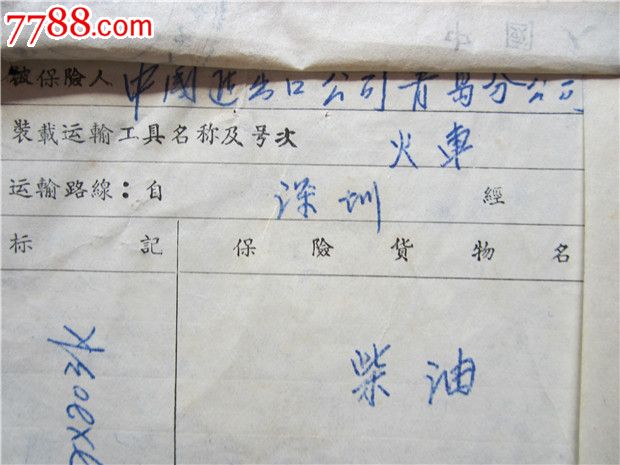 7788.com
國中
被保險人 中國進出口公司青島分公司
裝載运輸工具名称及号次 火車
运輸路線：自 深圳 經
标記 保險貨物名
柴油